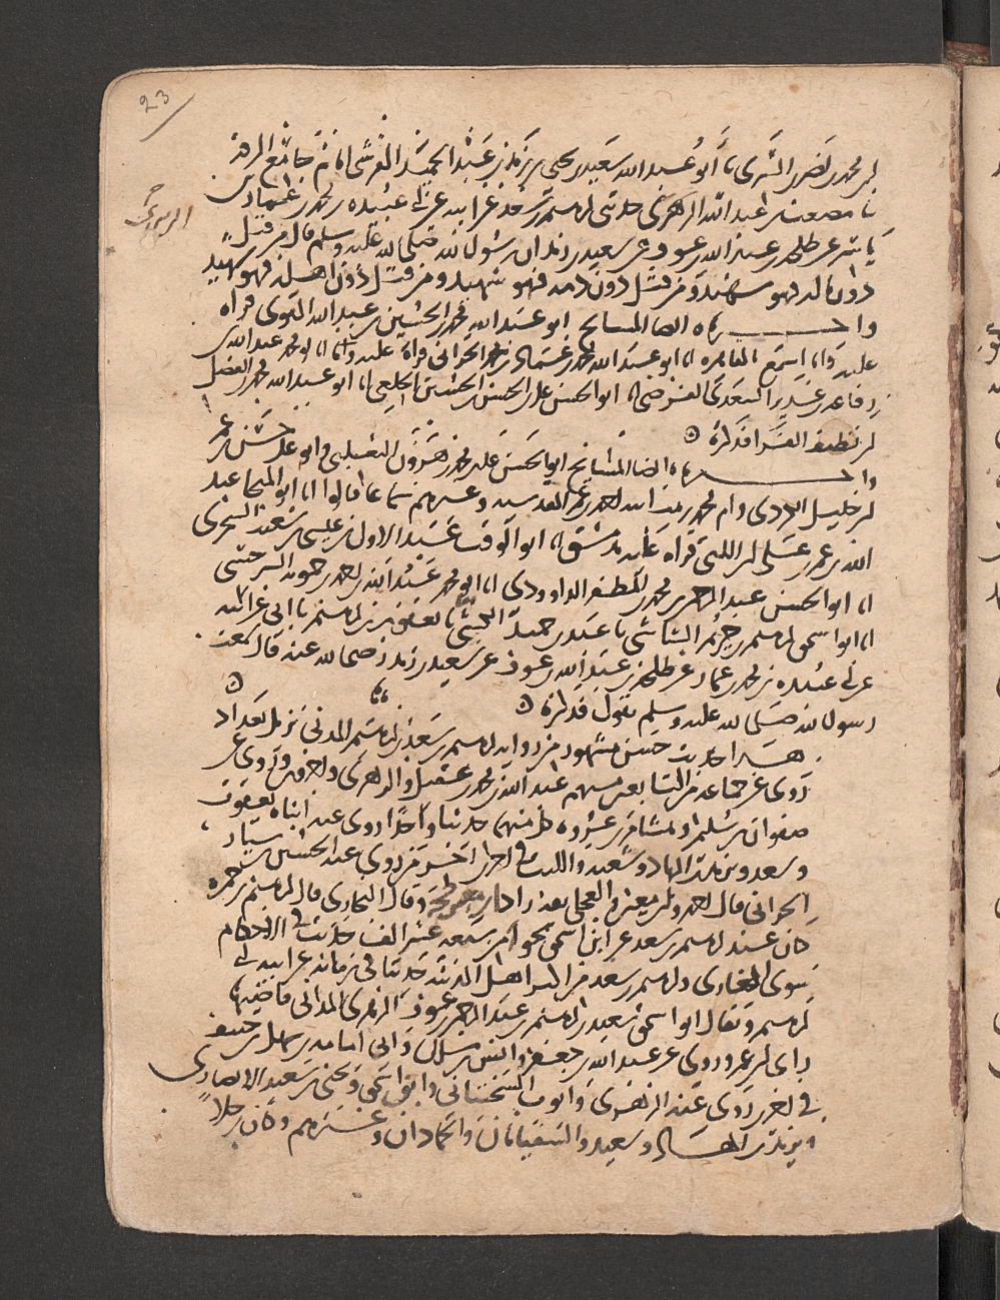 23
بن محمد بن نصر السري نا أبو عبد الله سعيد بن يحيى بن يزيد بن عبد الحميد القرشي امام جامع الرقة
نا مصعب بن عبد الله الزهري حدثني ابرهيم بن سعد عن ابيه عن ابي عبيده بن محمد بن عمار بن
ياسر عن طلحه بن عبد الله بن عوف عن سعيد بن زيد ان رسول الله صلى الله عليه وسلم قال من قتل
دون ماله فهو شهيد ومن قتل دون دمه فهو شهيد ومن قتل دون اهله فهو شهيد
واخبرناه ايضا المشايخ ابو عبد الله محمد بن الحسين بن عبد الله الفوى قراه
عليه وانا اسمع بالقاهره انا ابو عبد الله محمد بن عماد بن محمد الحراني قراة عليه وانا انا ابو محمد عبد الله بن
رفاعه بن غدير السعدي الفرضي انا ابو الحسن علي بن الحسن بن الحسين الخلعي انا ابو عبد الله محمد بن الفضل
بن نظيف الفرا فذكره
واخبرناه ايضا المشايخ ابو الحسن علي بن محمد بن هرون الثعلبي وابو علي حسن بن عمر
بن خليل الكردي وام محمد بنت احمد بن عمر المقدسيه وغيرهم سماعا قالوا انا ابو المنجا عبد
الله بن عمر بن علي بن اللتي قراه عليه بدمشق انا ابو الوقت عبد الاول بن عيسى بن شعيب السجزي
انا ابو الحسن عبد الرحمن بن محمد بن المظفر الداوودي انا ابو محمد عبد الله بن احمد بن حمويه السرخسي
انا ابو اسحق ابرهيم بن خزيم الشاشي نا عبد بن حميد الكشي نا يعقوب بن ابرهيم نا ابي عن ابيه
عن ابي عبيده بن محمد بن عمار عن طلحه بن عبد الله بن عوف عن سعيد بن زيد رضي الله عنه قال سمعت
رسول الله صلى الله عليه وسلم يقول فذكره
هذا حديث حسن مشهور من روايه ابرهيم بن سعد بن ابرهيم المدني نزيل بغداد
روى عن جماعه من التابعين منهم عبد الله بن محمد بن عقيل والزهري واخرون وروى عن
صفوان بن سليم وهشام بن عروه كل منهما حديثا واحدا روى عنه ابناه يعقوب
وسعد ويزيد بن الهاد وشعبه والليث في اخرين اخر من روى عنه الحسين بن سيار
الحراني قال احمد وابن معين والعجلي ثقه زاد حجه وقال البخاري قال ابرهيم بن حمزه
كان عند ابرهيم بن سعد عن ابن اسحق نحوا من سبعه عشر الف حديث في الاحكام
سوى المغازي وابرهيم بن سعد من اكثر اهل المدينه حديثا في زمانه عن ابيه ابي
ابرهيم ويقال ابو اسحق سعد بن ابرهيم بن عبد الرحمن بن عوف الزهري المدني قاضيها
راى ابن عمر وروى عن عبد الله بن جعفر وانس بن مالك وابي امامه بن سهل بن حنيف
في اخرين روى عنه الزهري وايوب السختياني وابن اسحق ويحيى بن سعيد الانصاري
ويزيد بن الهاد وسعيد والسفيانان والحمادان وغيرهم وكان رجلا